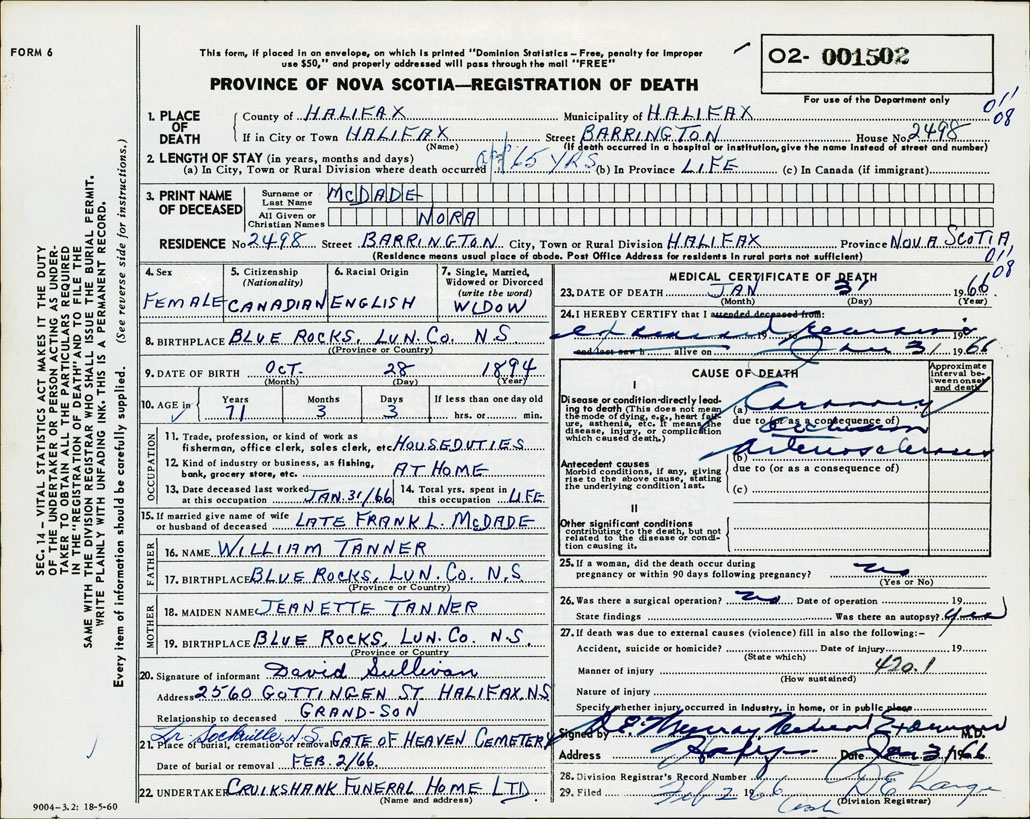 FORM 6
This form, if placed in an envelope, on which is printed "Dominion Statistics – Free, penalty for improper
use $50," and properly addressed will pass through the mail "FREE"
O2- 001502
For use of the Department only
PROVINCE OF NOVA SCOTIA—REGISTRATION OF DEATH
011
08
1. PLACE OF DEATH
County of HALIFAX Municipality of HALIFAX
If in City or Town HALIFAX Street BARRINGTON House No. 2498
(Name) (If death occurred in a hospital or institution, give the name instead of street and number)
2. LENGTH OF STAY (in years, months and days)
(a) In City, Town or Rural Division where death occurred 65 YRS (b) In Province LIFE (c) In Canada (if immigrant)
3. PRINT NAME OF DECEASED
Surname or Last Name MCDADE
All Given or Christian Names NORA
RESIDENCE No 2498 Street BARRINGTON City, Town or Rural Division HALIFAX Province NOVA SCOTIA
(Residence means usual place of abode. Post Office Address for residents in rural parts not sufficient)
011
08
4. Sex FEMALE
5. Citizenship (Nationality) CANADIAN
6. Racial Origin ENGLISH
7. Single, Married, Widowed or Divorced (write the word) WIDOW
8. BIRTHPLACE BLUE ROCKS, LUN. CO. N S
(Province or Country)
9. DATE OF BIRTH OCT. 28 1894
(Month) (Day) (Year)
10. AGE in Years 71 Months 3 Days 3 If less than one day old hrs. or min.
OCCUPATION
11. Trade, profession, or kind of work as
fisherman, office clerk, sales clerk, etc. HOUSEDUTIES
12. Kind of industry or business, as fishing,
bank, grocery store, etc. AT HOME
13. Date deceased last worked at this occupation JAN. 31/66
14. Total yrs. spent in this occupation LIFE
15. If married give name of wife or husband of deceased LATE FRANK L. MCDADE
FATHER
16. NAME WILLIAM TANNER
17. BIRTHPLACE BLUE ROCKS, LUN. CO. N.S
(Province or Country)
MOTHER
18. MAIDEN NAME JEANETTE TANNER
19. BIRTHPLACE BLUE ROCKS, LUN. CO. N.S.
(Province or Country)
20. Signature of informant David Sullivan
Address 2560 GOTTINGEN ST HALIFAX. N.S
Relationship to deceased GRAND-SON
Lr. Sackville, N.S.
21. Place of burial, cremation or removal GATE OF HEAVEN CEMETERY
Date of burial or removal FEB. 2/66.
22. UNDERTAKER CRUIKSHANK FUNERAL HOME LTD.
(Name and address)
9004-3.2: 18-5-60
MEDICAL CERTIFICATE OF DEATH
23. DATE OF DEATH JAN 31 1966
(Month) (Day) (Year)
24. I HEREBY CERTIFY that I attended deceased from:
19 to 19
and last saw h alive on Jan 31 1966
CAUSE OF DEATH
Approximate interval between onset and death
I
Disease or condition directly leading to death (This does not mean
the mode of dying, e.g., heart failure, asthenia, etc. It means the
disease, injury, or complication which caused death.)
(a) Coronary
due to (or as a consequence of)
occlusion
(b) Arteriosclerosis
due to (or as a consequence of)
(c)
Antecedent causes
Morbid conditions, if any, giving
rise to the above cause, stating
the underlying condition last.
II
Other significant conditions
contributing to the death, but not
related to the disease or condition causing it.
25. If a woman, did the death occur during
pregnancy or within 90 days following pregnancy? no
(Yes or No)
26. Was there a surgical operation? no Date of operation 19
State findings Was there an autopsy? yes
27. If death was due to external causes (violence) fill in also the following:–
Accident, suicide or homicide? Date of injury 19
(State which)
Manner of injury 420.1
(How sustained)
Nature of injury
Specify whether injury, occurred in industry, in home, or in public place
Signed by D.E. Murray Medical Examiner M.D.
Address Date Jan 31 1966
28. Division Registrar's Record Number
29. Filed Feb 2 1966
(Division Registrar)
SEC. 14 – VITAL STATISTICS ACT MAKES IT THE DUTY
OF THE UNDERTAKER OR PERSON ACTING AS UNDERTAKER TO OBTAIN ALL THE PARTICULARS REQUIRED
IN THE "REGISTRATION OF DEATH" AND TO FILE THE
SAME WITH THE DIVISION REGISTRAR WHO SHALL ISSUE THE BURIAL PERMIT.
WRITE PLAINLY WITH UNFADING INK. THIS IS A PERMANENT RECORD.
Every item of information should be carefully supplied. (See reverse side for instructions.)